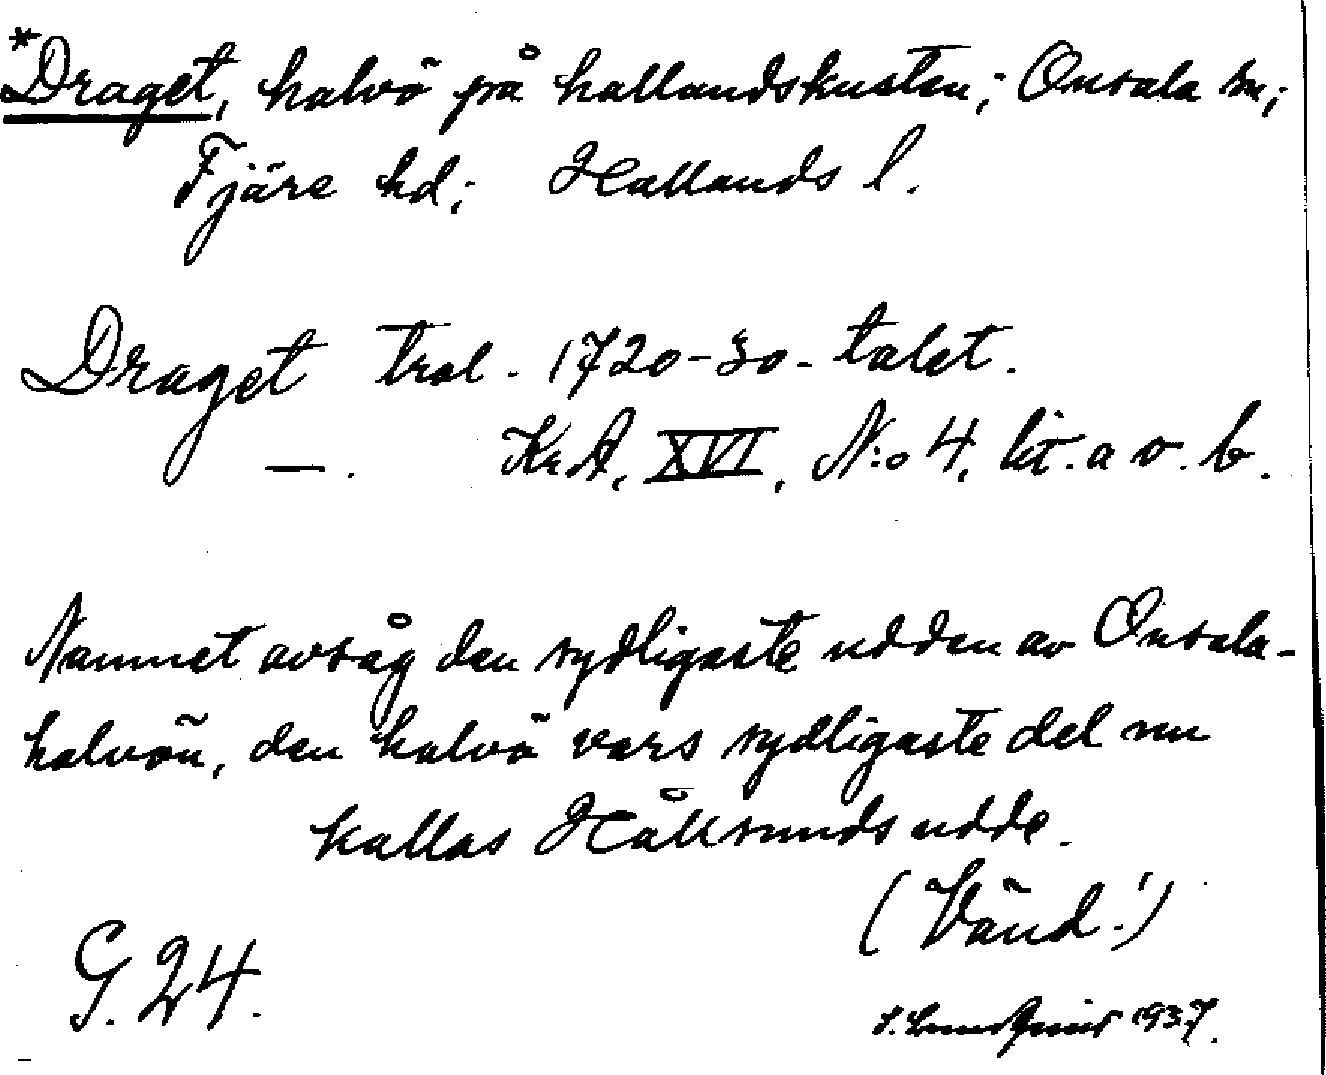 *Draget, halvö på hallandskusten; Onsala sn;
Fjäre hd; Hallands l.
Draget trol. 1720-30-talet.
—. Kr.A. XVI, N:o 4, lit. a o. b.
Namnet avsåg den sydligaste udden av Onsala-
halvön, den halvö vars sydligaste del nu
kallas Hållsunds udde.
(Vänd!)
G. 24.
S. Lundqvist 1937.